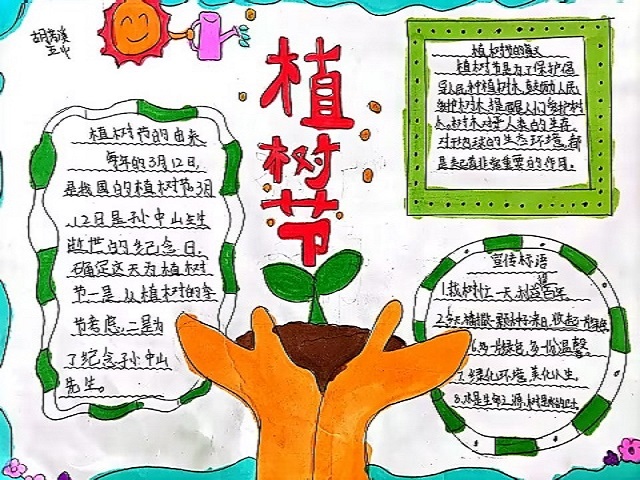 植树节
植树节的由来
每年的3月12日,
是我国的植树节3月
12日是孙中山先生
逝世的纪念日.
确定这天为植树
节一是从植树的季
节考虑,二是为
了纪念孙中山
先生。
植树节的意义
植树节是为了保护
人民种植树木,鼓励人民
爱护树木,提醒人们爱护树
木。树木对于人类的生存,
对于地球的生态环境,都
是起着非常重要的作用。
宣传标语
1.栽树忙一天,利益得百年
2.
6.多一份绿色,多一份温馨
7.绿化环境,美化人生
8.